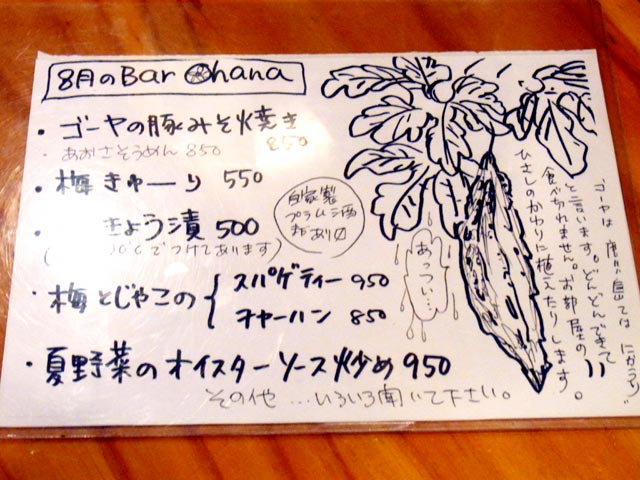 8月のBar Ohana
・ゴーヤの豚みそ焼き 850
・あおさそうめん 850
・梅きゅーり 550
・ きょう漬 500
( でつけてあります)
・梅とじゃこの{スパゲティー 950
チャーハン 850
・夏野菜のオイスターソース炒め 950
その他…いろいろ聞いて下さい。
自家製
プラム酒
も あり〼
あっつい…
ゴーヤは 島では にがうり"
と言います。どんどんできて
食べ切れません。お部屋の
ひさしのかわりに植えたりします。